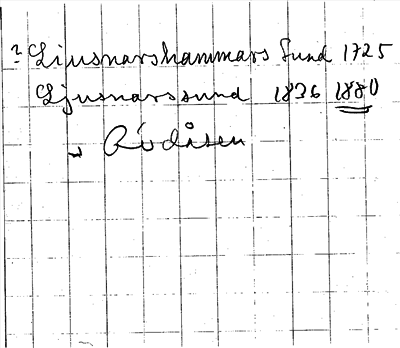 ? Ljusnarshammars Sund 1725
Ljusnarssund 1836 1880
Rödåsen